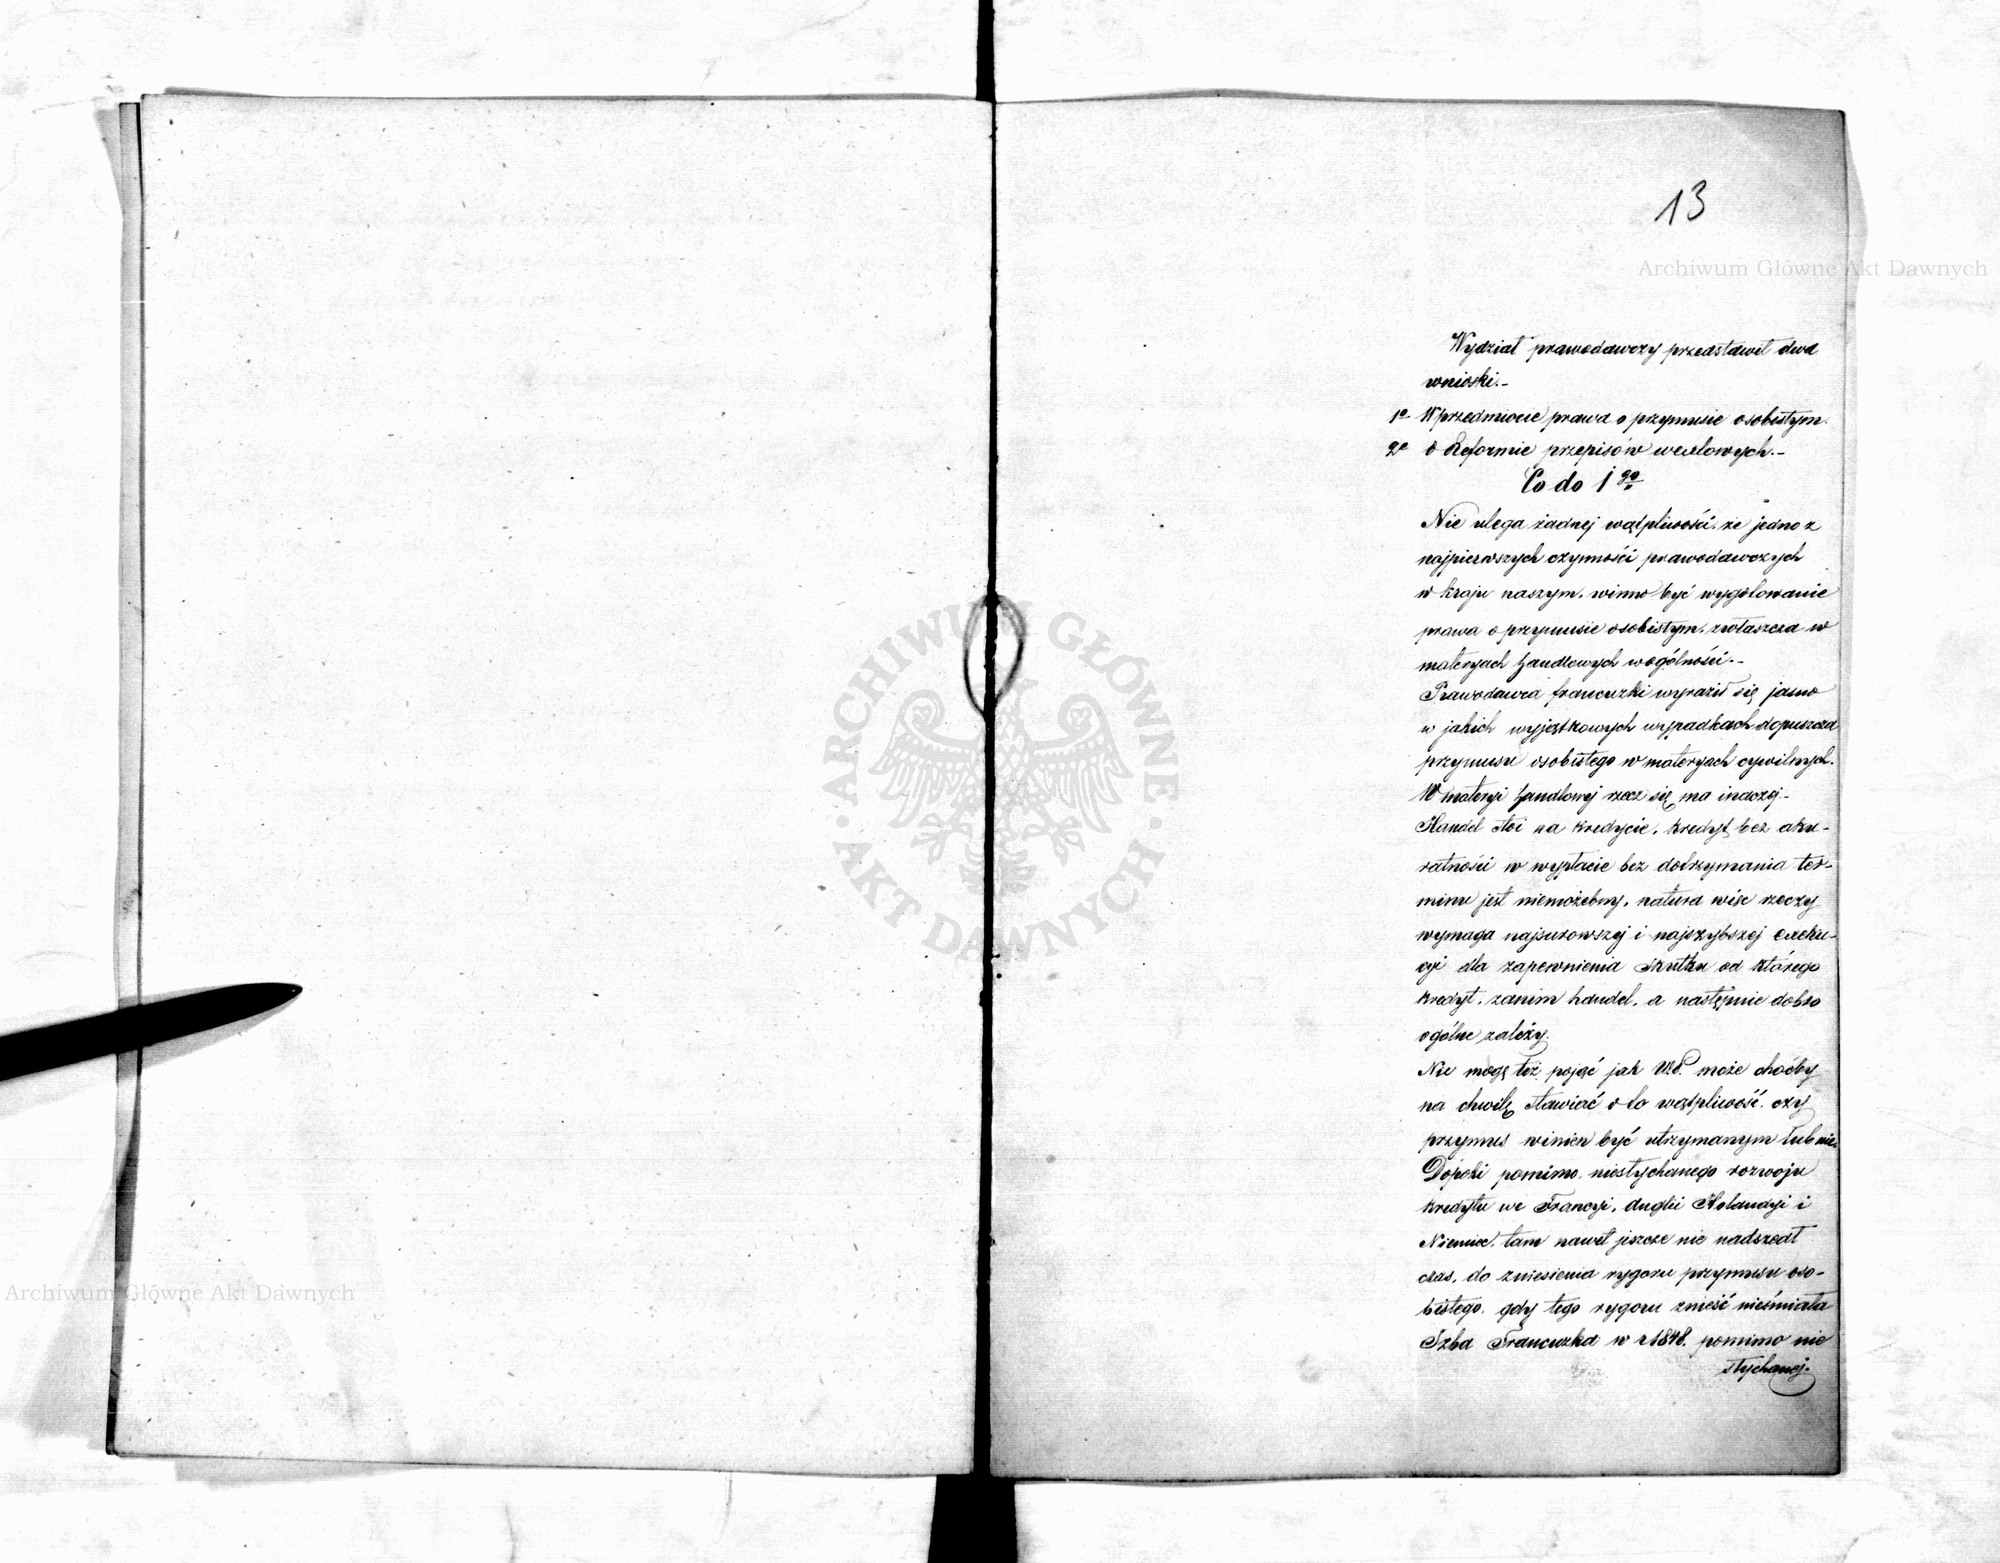 13
Archiwum Główne Akt Dawnych
Wydział prawodawczy przedstawił dwa
wnioski.-
1º W przedmiocie prawa o przymusie osobistym.
2º o Reformie przepisów wexlowych.-
Co do 1go
Nie ulega żadnej wątpliwości, że jedno z
najpierwszych czynności prawodawczych
w kraju naszym, winno być wygotowanie
prawa o przymusie osobistym, zwłaszcza w
materyach handlowych wogólności.-
Prawodawca francuzki wyraził się jasno
w jakich wyjątkowych wypadkach dopuszcza
przymusu osobistego w materyach cywilnych.
W materyi handlowej rzecz się ma inaczej.-
Handel stoi na kredycie, kredyt bez aku-
ratności w wypłacie bez dotrzymania ter-
minu jest niemożebny, natura więc rzeczy
wymaga najsurowszej i najszybszej exeku-
cyi dla zapewnienia skutku od którego
kredyt, zanim handel, a następnie dobro
ogólne zależy.
Nie mogę też pojąć jak W.P. może choćby
na chwilę stawiać o to wątpliwość, czy
przymus winien być utrzymanym lub nie.
Dopóki pomimo niesłychanego rozwoju
kredytu we Francyi, Anglii Holandyi i
Niemiec, tam nawet jeszcze nie nadszedł
czas, do zniesienia rygoru przymusu oso-
bistego, gdy tego rygoru znieść nieśmiała
Izba Francuzka w r 1848. pomimo nie
słychanej.
ARCHIWUM GŁÓWNE
AKT DAWNYCH
Archiwum Główne Akt Dawnych